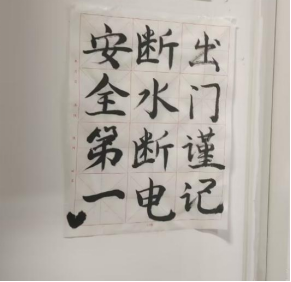 出门谨记
断水断电
安全第一